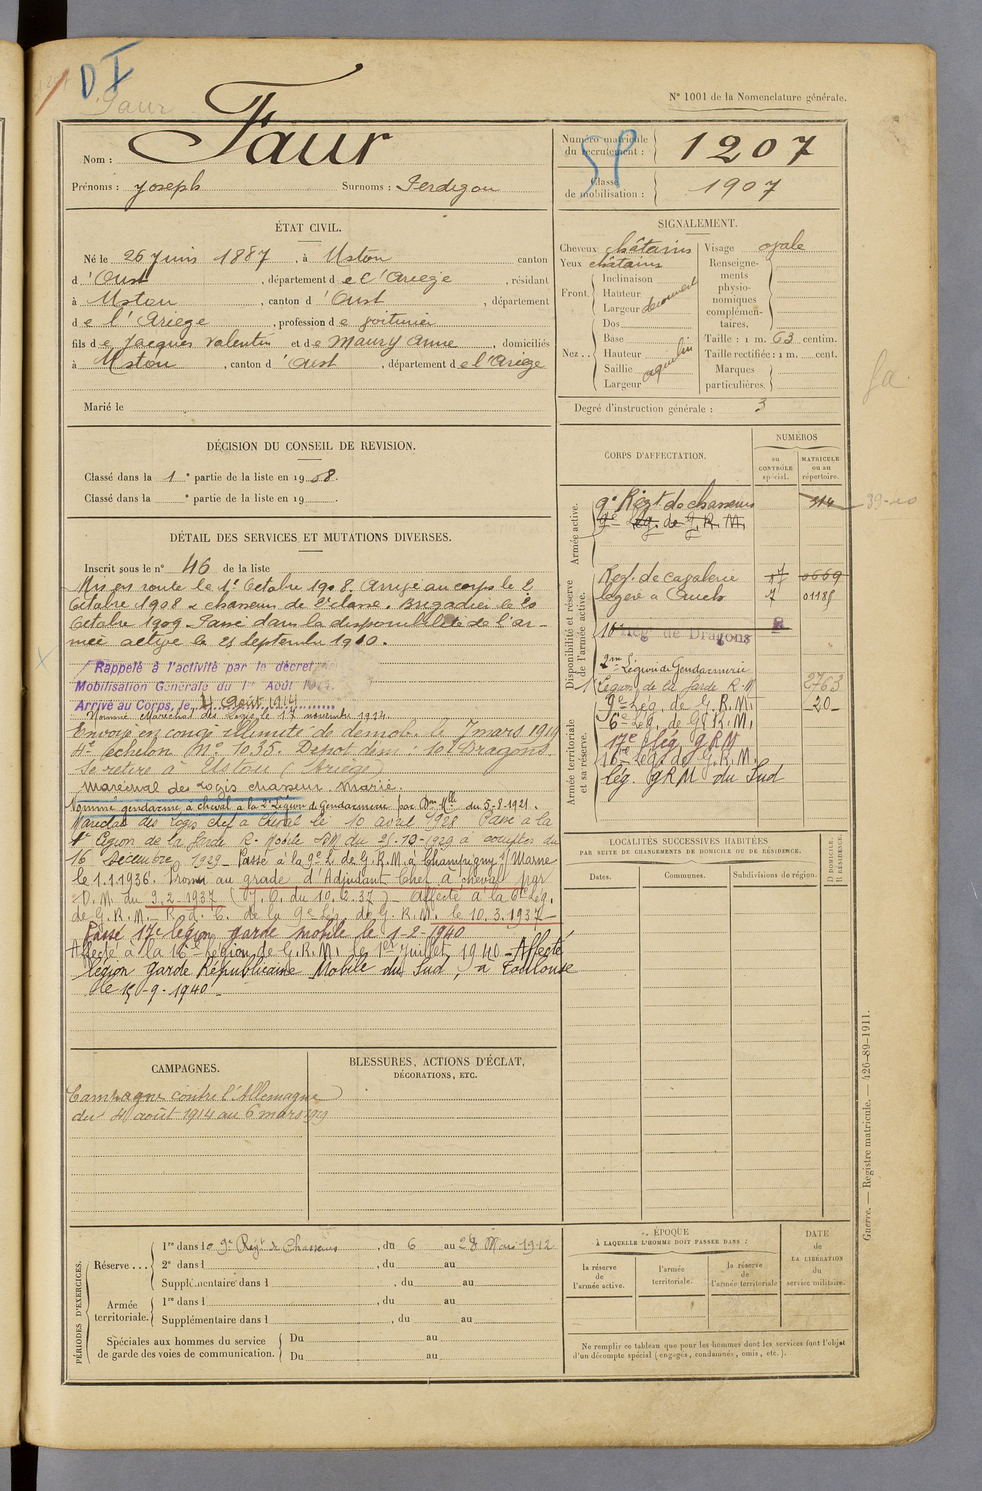 D I
Faur
N° 1001 de la Nomenclature générale.
Nom : Faur
Prénoms : Joseph Surnoms : Perdigou
Numéro matricule du recrutement : 1207
Classe de mobilisation : 1907
ÉTAT CIVIL.
Né le 26 Juin 1887, à Ustou canton
d'Oust, département de l'Ariège, résidant
à Ustou, canton d'Oust, département
de l'Ariege, profession de voiturier
fils de Jacques Valentin et de Maury Anne, domiciliés
à Ustou, canton d'Oust, département de l'Ariège
Marié le
SIGNALEMENT.
Cheveux châtains
Yeux châtains
Front. Inclinaison
Hauteur
Largeur découvert
Nez .. Dos
Base
Hauteur
Saillie aquilin
Largeur
Visage ovale
Renseignements physionomiques complémentaires.
Taille : 1 m. 63 centim.
Taille rectifiée : 1 m. cent.
Marques particulières.
Degré d'instruction générale : 3
DÉCISION DU CONSEIL DE REVISION.
Classé dans la 1e partie de la liste en 1908.
Classé dans la e partie de la liste en 19
DÉTAIL DES SERVICES ET MUTATIONS DIVERSES.
Inscrit sous le n° 46 de la liste
Mis en route le 1er Octobre 1908. Arrivé au corps le 2
Octobre 1908 & chasseur de 2e classe. Brigadier le 20
Octobre 1909. Passé dans la disponibilité de l'ar-
mée active le 25 Septembre 1910.
Rappelé à l'activité par le décret de
Mobilisation Générale du 1er Août 1914.
Arrivé au Corps, le 4 Août 1914
Nommé Maréchal des Logis le 17 novembre 1914
Envoyé en congé illimité de démob. le 7 mars 1919
4e échelon N° 1035. Dépôt dém : 10e Dragons
Se retire à Ustou (Ariège)
Maréchal des Logis chasseur. Marié.
Nommé gendarme à cheval à la 2e Légion de Gendarmerie par Don Mlle du 5-8-1921.
Maréchal des Logis chef à cheval le 10 avril 1928 Passé à la
1e Légion de la Garde R. Mobile DM du 25-10-1929 à compter du
16 Décembre 1929 - Passé à la 9e L. de G.R.M. à Champigny s/ Marne
le 1.1.1936. Promu au grade d'Adjudant Chef à cheval par
D.M. du 9.2.1937 (J.O. du 10.2.37) - Affecté à la 6e Lég.
de G.R.M. R. d. C. de la 9e Lég. de G.R.M. le 10.3.1937 -
Passé 17e légion garde mobile le 1-2-1940
Affecté à la 16e Légion de G.R.M. le 1er Juillet 1940 - Affecté
légion Garde Républicaine Mobile du Sud, à Toulouse
le 15-9-1940 -
CORPS D'AFFECTATION.
NUMÉROS
au CONTRÔLE spécial.
MATRICULE ou au répertoire.
Armée active.
9e Régt de chasseurs 314
39-10
9e Lég. de G.R.M.
Disponibilité et réserve de l'armée active.
Regt. de cavalerie 17 0669
légère à Auch 7 01185
10e Rég de Dragons
2me Légion de Gendarmerie
1e Légion de la Garde R.M 2763
9e Lég. de G.R.M. 20
Armée territoriale et sa réserve.
6e Lég. de G.R.M.
17e Lég GRM
16e Lég. de G.R.M.
lég. GRM du Sud
LOCALITÉS SUCCESSIVES HABITÉES
PAR SUITE DE CHANGEMENTS DE DOMICILE OU DE RÉSIDENCE.
Dates. Communes. Subdivisions de région. D DOMICILE. R RÉSIDENCE.
CAMPAGNES.
Campagne contre l'Allemagne
du 4 août 1914 au 6 mars 1919
BLESSURES, ACTIONS D'ÉCLAT,
DÉCORATIONS, ETC.
PÉRIODES D'EXERCICES.
Réserve ... 1re dans le 9e Régt de Chasseurs, du 6 au 28 Mars 1912
2e dans l, du au
Supplémentaire dans l, du au
Armée territoriale. 1re dans l, du au
Supplémentaire dans l, du au
Spéciales aux hommes du service de garde des voies de communication. Du au
Du au
ÉPOQUE
À LAQUELLE L'HOMME DOIT PASSER DANS :
la réserve de l'armée active.
l'armée territoriale.
la réserve de l'armée territoriale
DATE de LA LIBÉRATION du service militaire.
Ne remplir ce tableau que pour les hommes dont les services font l'objet
d'un décompte spécial (engagés, condamnés, omis, etc.).
Guerre. — Registre matricule. — 426-89-1911.